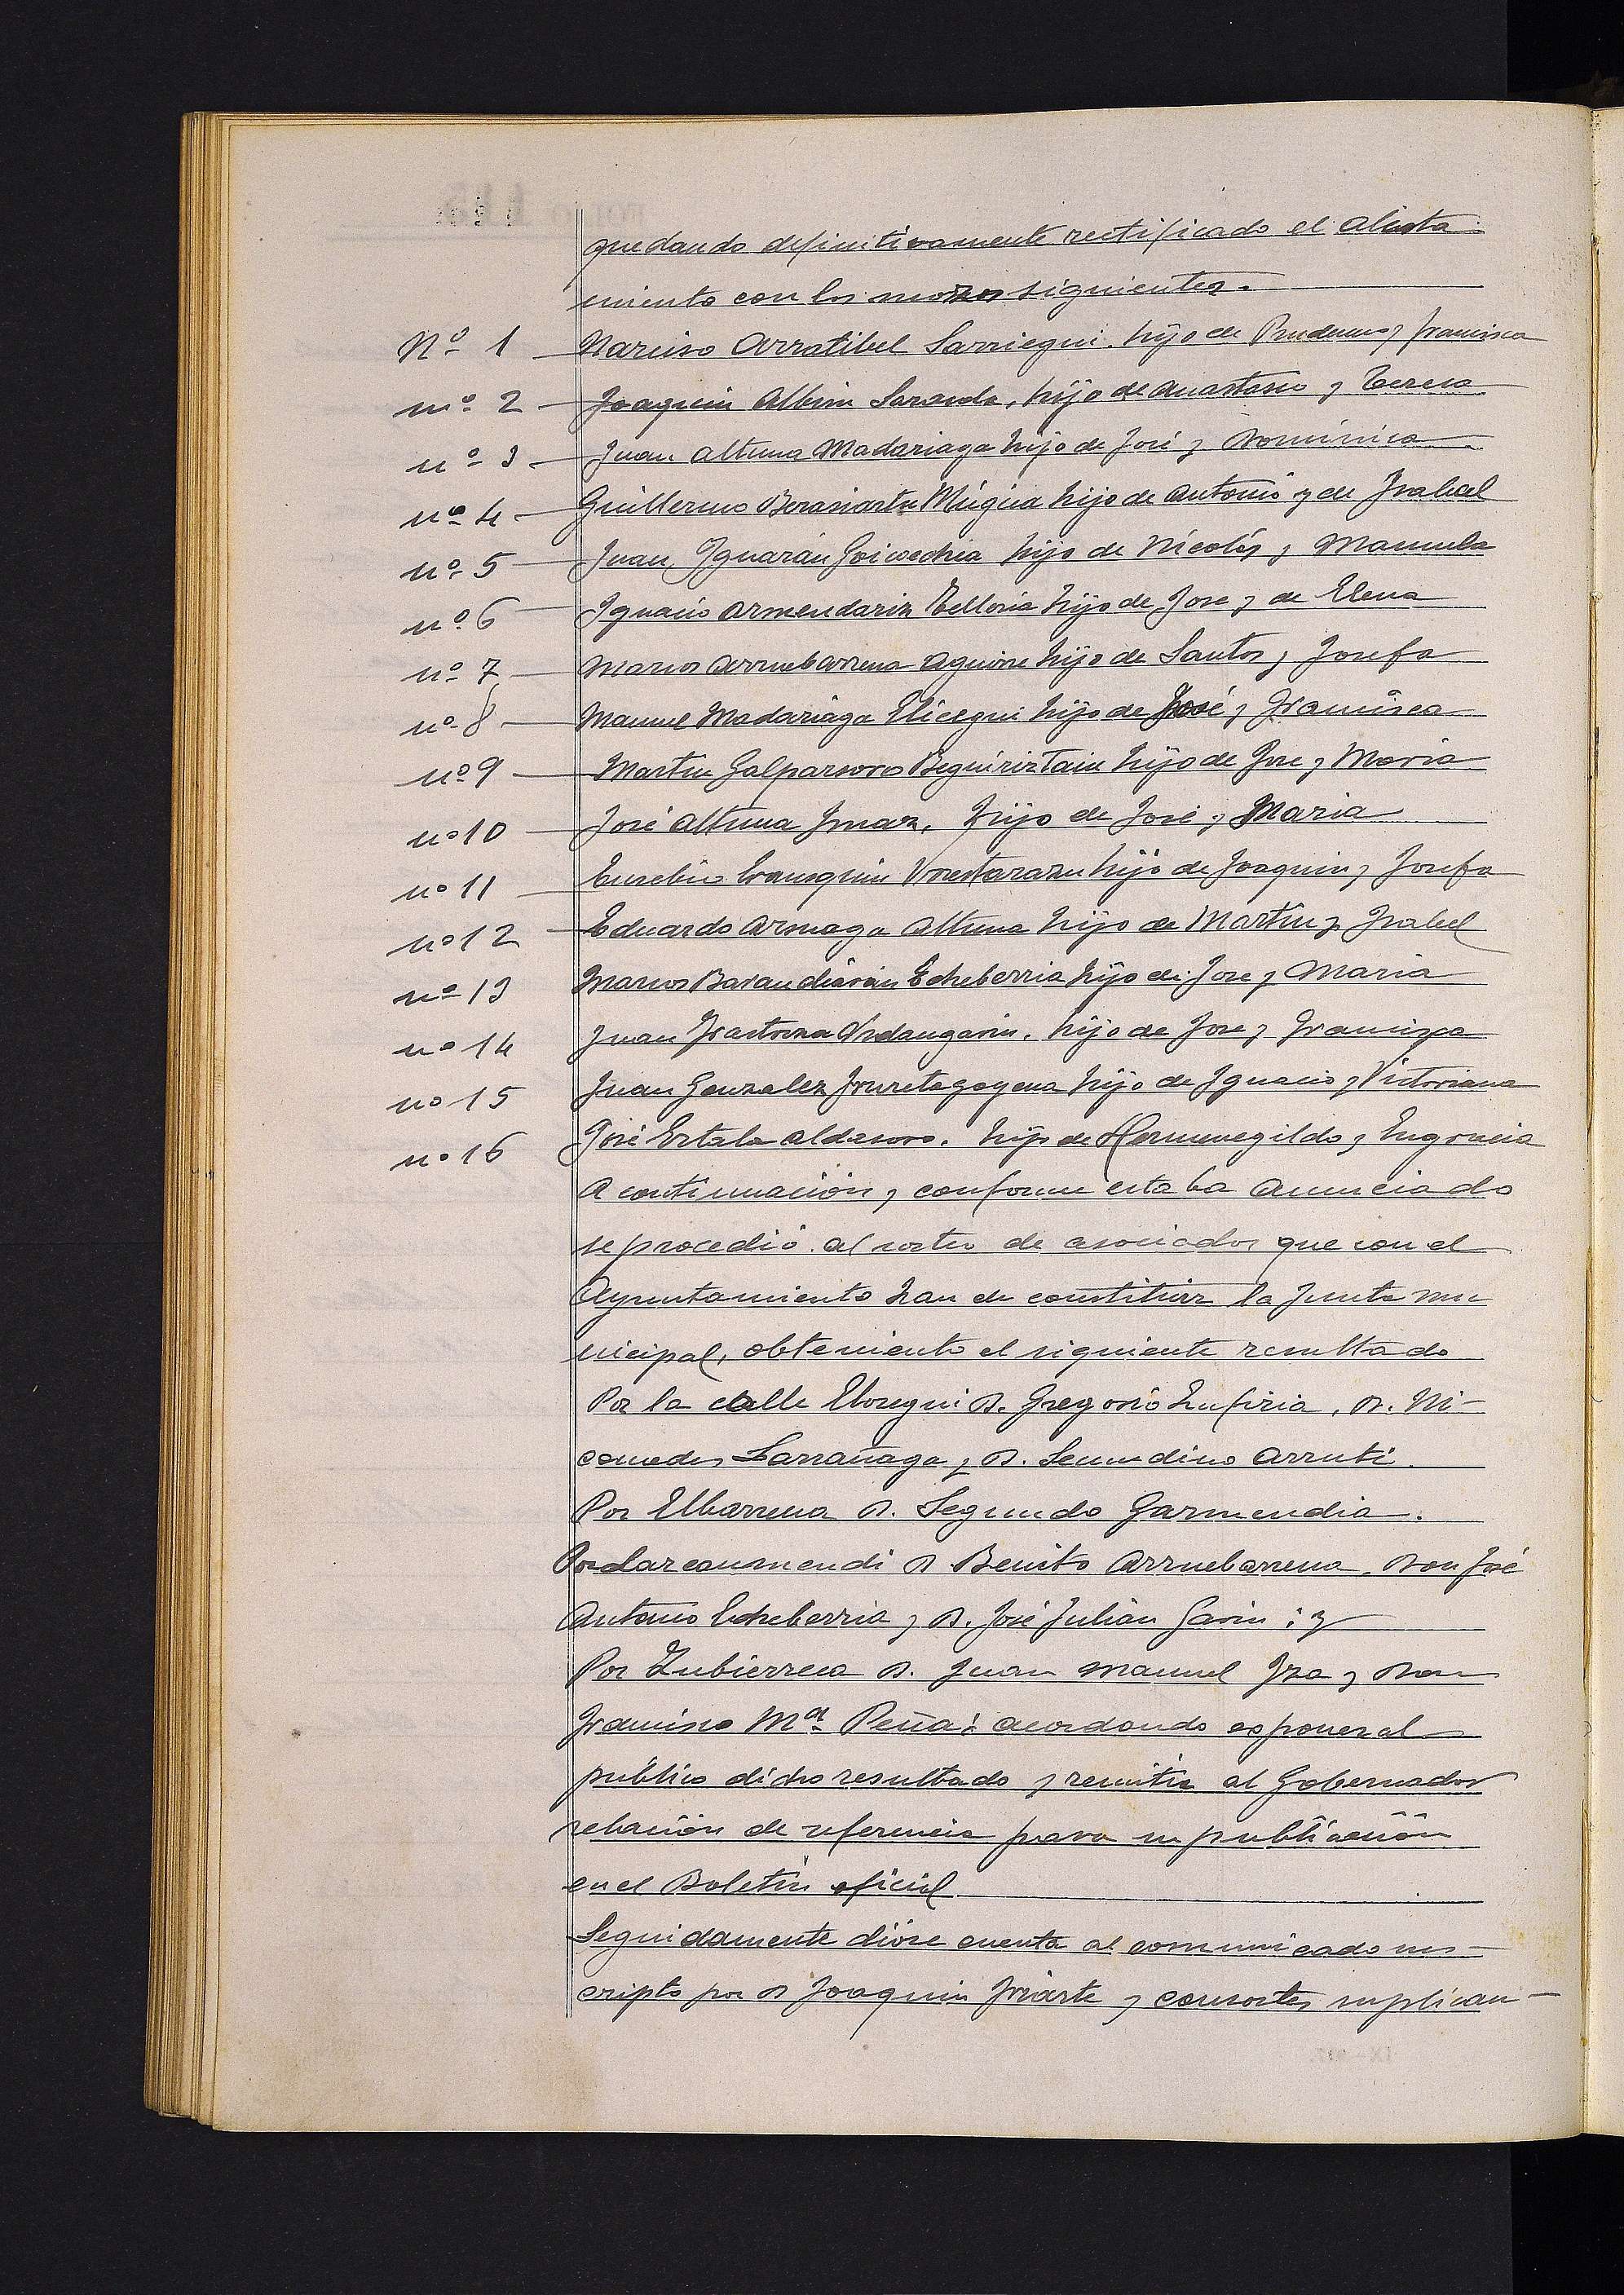 quedando definitivamente rectificado el alista-
miento con los mozos siguientes.
Nº 1 Narciso Arratibel Sarriegui. hijo de Prudencio y Francisca
nº 2 Joaquin Albisu Sarasola, hijo de Anastasio y Teresa
nº 3 Juan Altuna Madariaga hijo de José y Dominica
nº 4 Guillermo Berasiartu Múgica hijo de Antonio y de Isabel
nº 5 Juan Iguarán Goicoechea hijo de Nicolás y Manuela
nº 6 Ignacio Armendariz Telleria hijo de Jose y de Elena
nº 7 Marcos Arruebarrena Aguirre hijo de Santos y Josefa
nº 8 Manuel Madariaga Elicegui hijo de José y Francisca
nº 9 Martin Galparsoro Beguiriztain hijo de Jose y Maria
nº 10 José Altuna Imaz, hijo de José y Maria
nº 11 Eusebio hijo de Joaquin y Josefa
nº 12 Eduardo Arsuaga Altuna hijo de Martin y Isabel
nº 13 Marcos Barandiárán Echeberria hijo de Jose y Maria
nº 14 Juan Irastorza Urdangarin. hijo de Jose y Francisca
nº 15 Juan Gonzalez Iruretagoyena hijo de Ignacio y Victoriana
nº 16 José Aldasoro. hijo de Hermenegildo y Engracia
A continuación y conforme estaba anunciado
se procedió al sorteo de asociados que con el
Ayuntamiento han de constituir la Junta mu
nicipal, obteniento el siguiente resultado
Por la calle Elosegui D. Gregorio Zufiria, D. Ni-
comedes Larrañaga y D. Secundino Arruti.
Por Elbarrena D. Segundo Garmendia.
Por Lazcaumendi D Benito Arruebarrena, Don José
Antonio Echeberria y D. José Julián Garin; y
Por Zubierreca D. Juan Manuel Iza y Don
Francisco Mª Peña: acordando exponer al
público dicho resultado y remitir al Gobernador
relación de referencia para su publicación
en el Boletin oficial
Seguidamente dióse cuenta al comunicado sus-
cripto por D Joaquin Iriarte y consortes suplican-